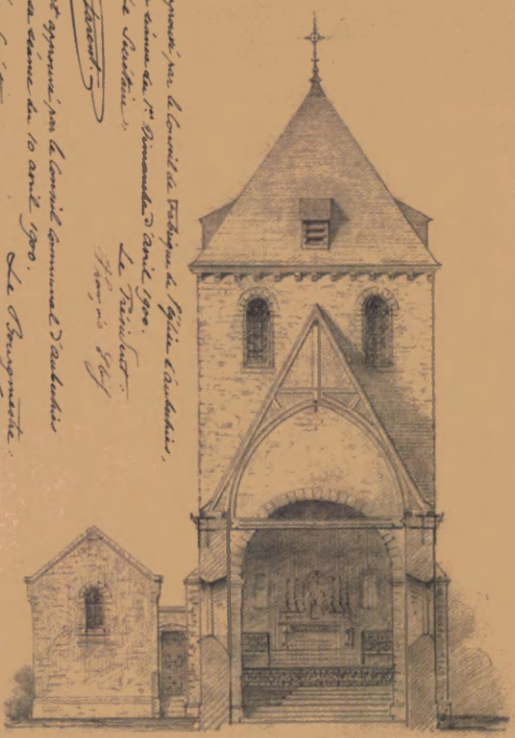 pprouvé par le Conseil de Fabrique de l'église d'Aubechies,
séance du 1er Dimanche d'avril 1900.
Le Secrétaire, Le Président:
Parent François
approuvé par le Conseil Communal d'Aubechies
sa séance du 10 avril 1900.
Le Bourgmestre.